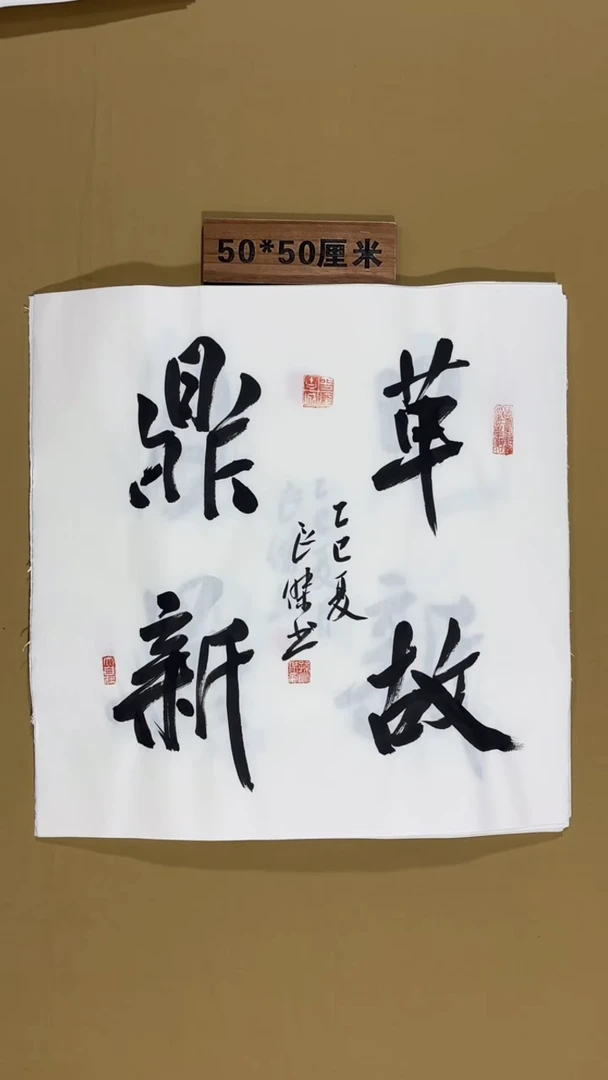 50*50厘米
革故
鼎新
乙巳夏
良杰书